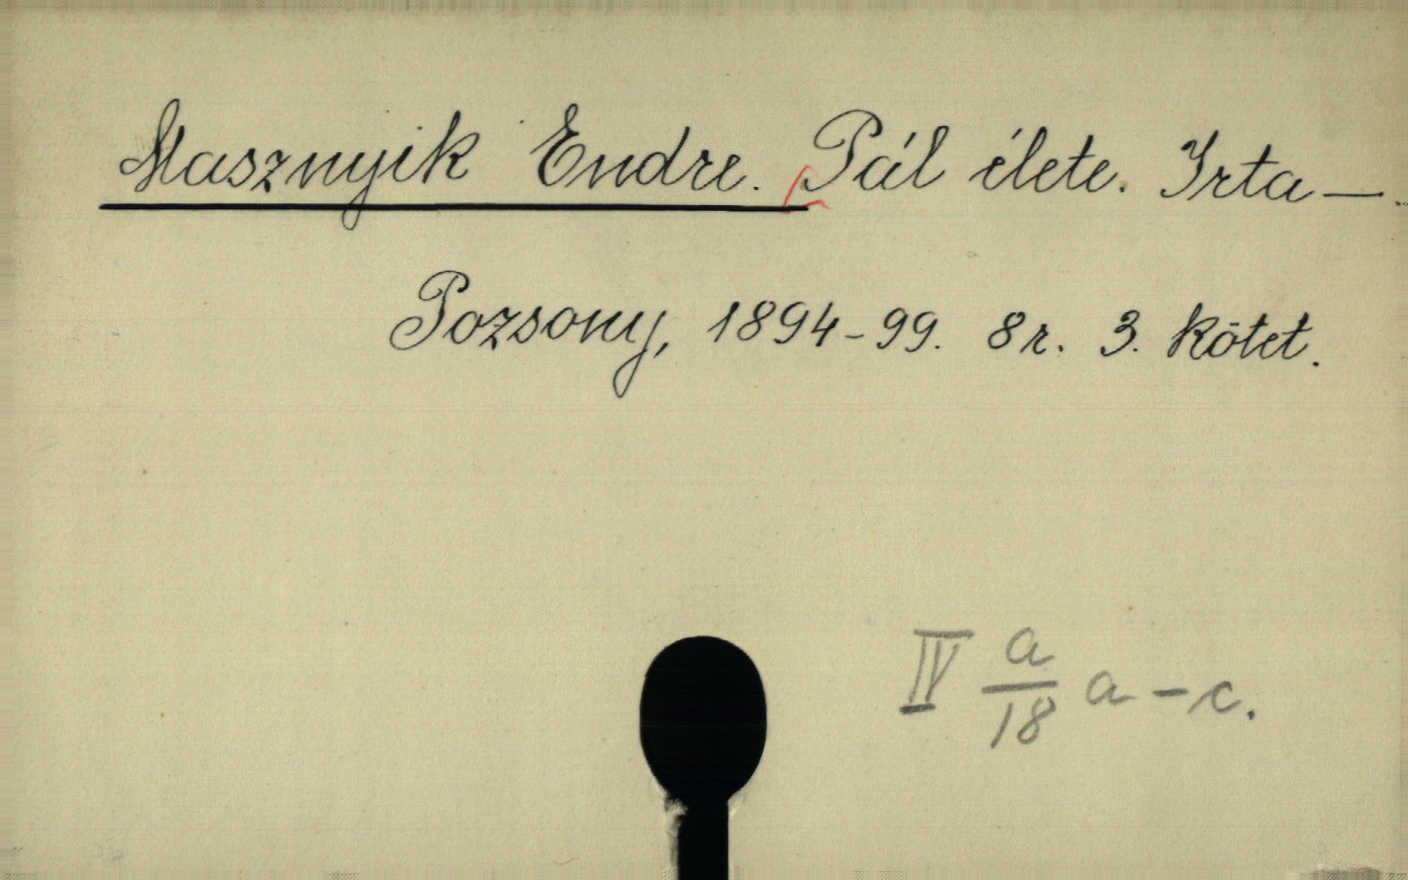 Masznyik Endre. Pál élete. Irta —.
Pozsony, 1894-99. 8r. 3. kötet.
IV a/18 a-c.